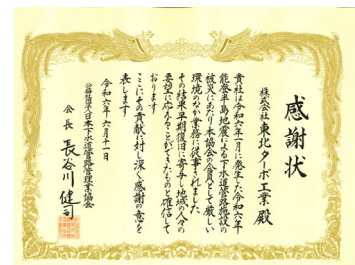 感謝状
株式会社東北ターボ工業 殿
貴社は令和六年一月に発生した令和六年
能登半島地震による下水道管路施設の
被災にあたり本協会の会員として厳しい
環境のなか業務に従事されました
その結果早期復旧に寄与し地域の人々の
要望に応えることができたものと確信して
おります
ここにその貢献に対し深く感謝の意を
表します
令和六年六月十一日
公益社団法人日本下水道管路管理業協会
会長 長谷川健司